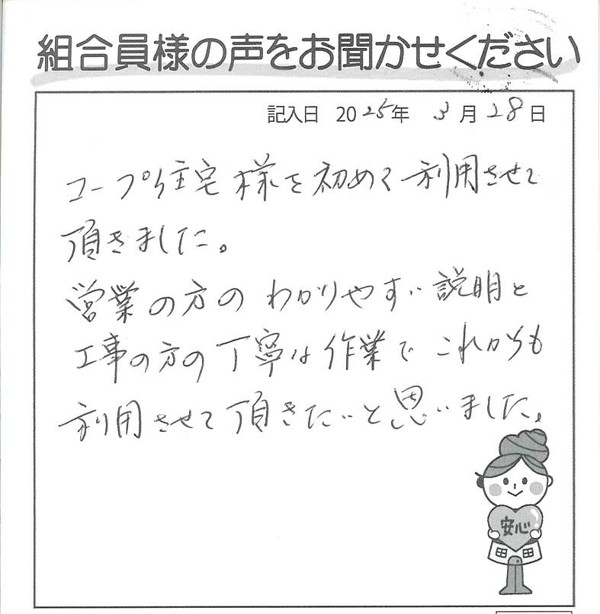 組合員様の声をお聞かせください
記入日 2025年 3月28日
コープ住宅様を初めて利用させて
頂きました。
営業の方のわかりやすい説明と
工事の方の丁寧な作業でこれからも
利用させて頂きたいと思いました。
安心